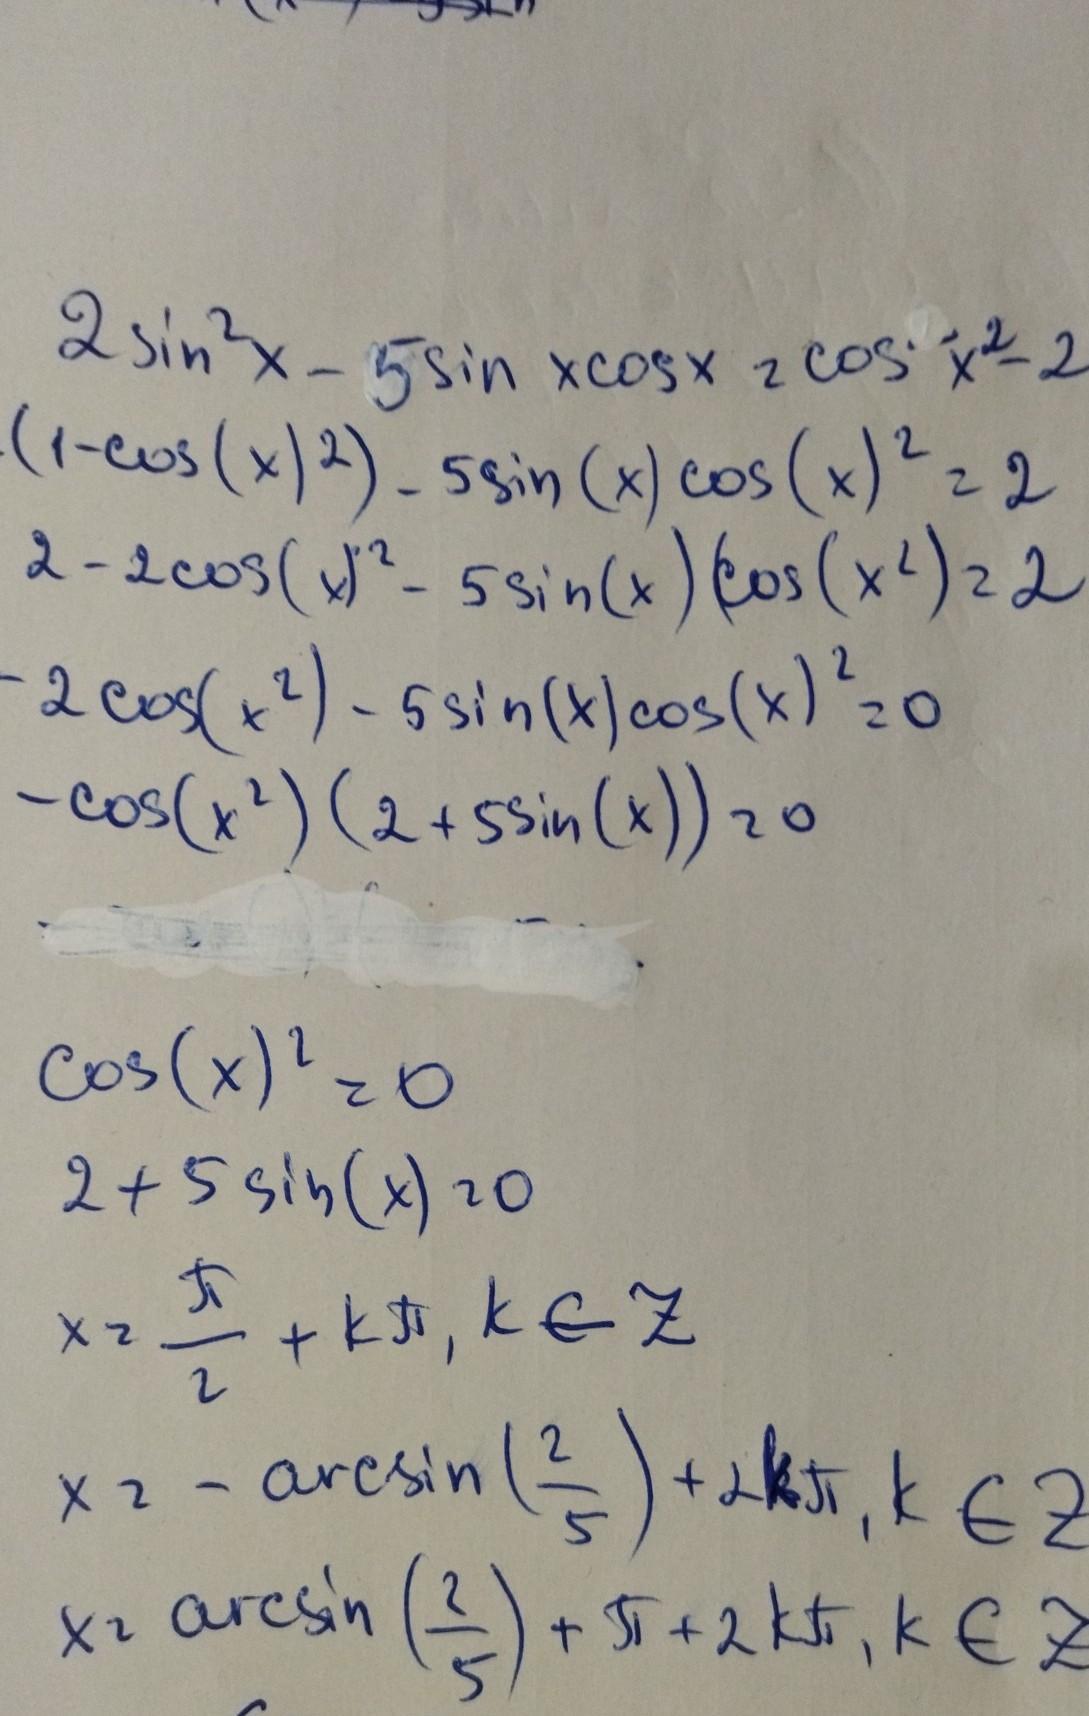 2 sin²x - 5 sin x cos x = cos x² - 2
(1 - cos(x)2) - 5 sin(x) cos(x)² = 2
2 - 2 cos(x)² - 5 sin(x) (cos(x²) = 2
- 2 cos(x²) - 5 sin(x) cos(x)² = 0
- cos(x²) (2 + 5 sin(x)) = 0
cos(x)² = 0
2 + 5 sin(x) = 0
x = π/2 + kπ, k ∈ Z
x = - arcsin(2/5) + 2kπ, k ∈ Z
x = arcsin(2/5) + π + 2kπ, k ∈ Z